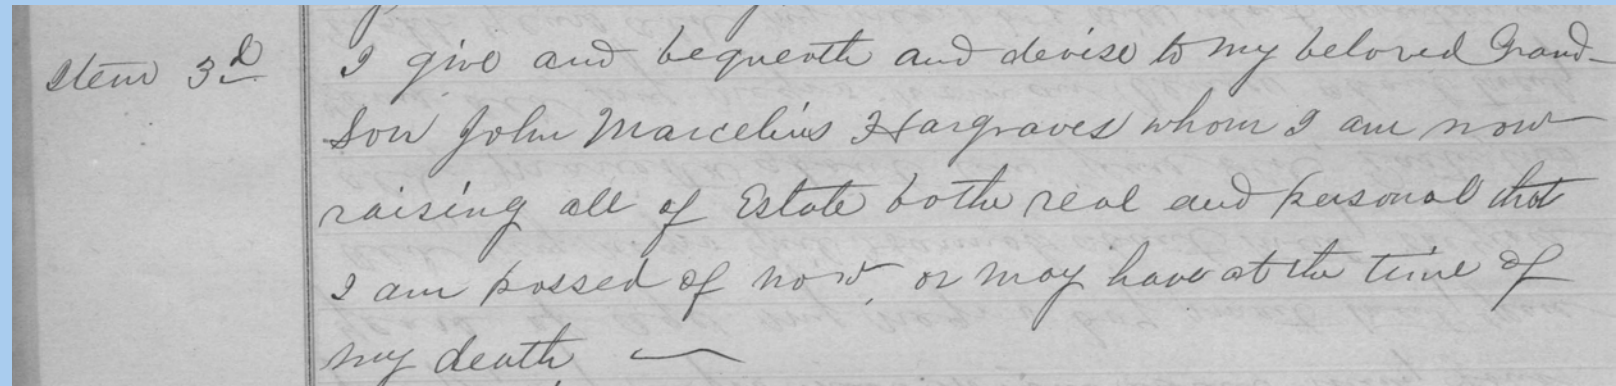 Item 3d I give and bequeath and devise to my beloved Grand-
son John Marcelius Hargraves whom I am now
raising all of Estate both real and personal that
I am possed of now, or may have at the time of
my death